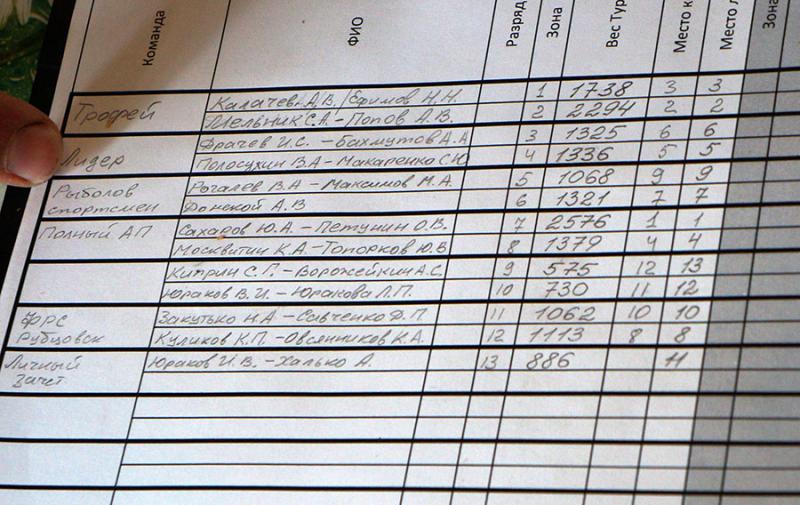 Команда ФИО Разряд Зона Вес Тур Место к Место л Зона
Трофей Калачев А.В./Ефимов Н.Н. 1 1738 3 3
Мельник С.А.-Попов А.В. 2 2294 2 2
Лидер Фрачев И.С.-Бахмутов А.А 3 1325 6 6
Полосухин В.А-Макаренко С.Ю. 4 1336 5 5
Рыболов Рогалев В.А-Максимов М.А. 5 1068 9 9
спортсмен Донской А.В 6 1321 7 7
Полный АП Сахаров Ю.А.-Петунин О.В. 7 2576 1 1
Москвитин К.А-Топорков Ю.В 8 1379 4 4
Киприн С.П-Ворожейкин А.С. 9 575 12 13
Юраков В.И.-Юракова Л.П. 10 730 11 12
ФРС Закутько Н.А-Савченко Д.П 11 1062 10 10
Рубцовск Куликов К.П.-Овсянников К.А. 12 1113 8 8
Личный Юраков И.В.-Халько А. 13 886 11
Зачет